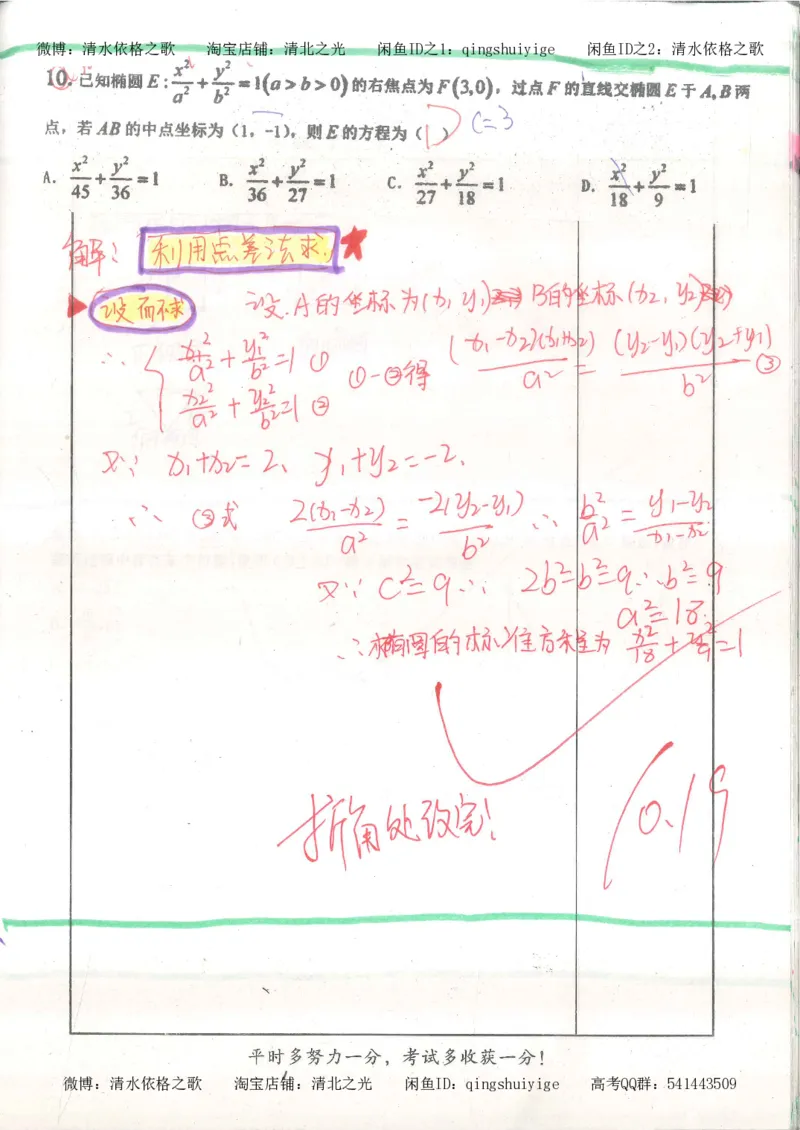 微博：清水依格之歌 淘宝店铺：清北之光 闲鱼ID之1：qingshuiyige 闲鱼ID之2：清水依格之歌
10. 已知椭圆 E: x²/a² + y²/b² = 1(a > b > 0) 的右焦点为 F(3,0)，过点 F 的直线交椭圆 E 于 A, B 两
点，若 AB 的中点坐标为（1，-1），则 E 的方程为（D） C=3
A. x²/45 + y²/36 = 1 B. x²/36 + y²/27 = 1 C. x²/27 + y²/18 = 1 D. x²/18 + y²/9 = 1
解： 利用点差法求.★
设而不求 设.A的坐标为(x₁,y₁) B的坐标(x₂,y₂)
∴ { x₁²/a² + y₁²/b² = 1 ① ①-②得 (x₁-x₂)(x₁+x₂)/a² = (y₂-y₁)(y₂+y₁)/b² ③
x₂²/a² + y₂²/b² = 1 ②
又∵ x₁+x₂=2、y₁+y₂=-2.
∴ ③式 2(x₁-x₂)/a² = -2(y₂-y₁)/b² ∴ b²/a² = y₁-y₂/x₁-x₂
又∵ c²=9 ∴ 2b²-b²=9 ∴ b²=9
a²=18.
∴椭圆的标准方程为 x²/18 + y²/9 = 1
折角处改完!
10.19
平时多努力一分，考试多收获一分！
微博：清水依格之歌 淘宝店铺：清北之光 闲鱼ID：qingshuiyige 高考QQ群：541443509